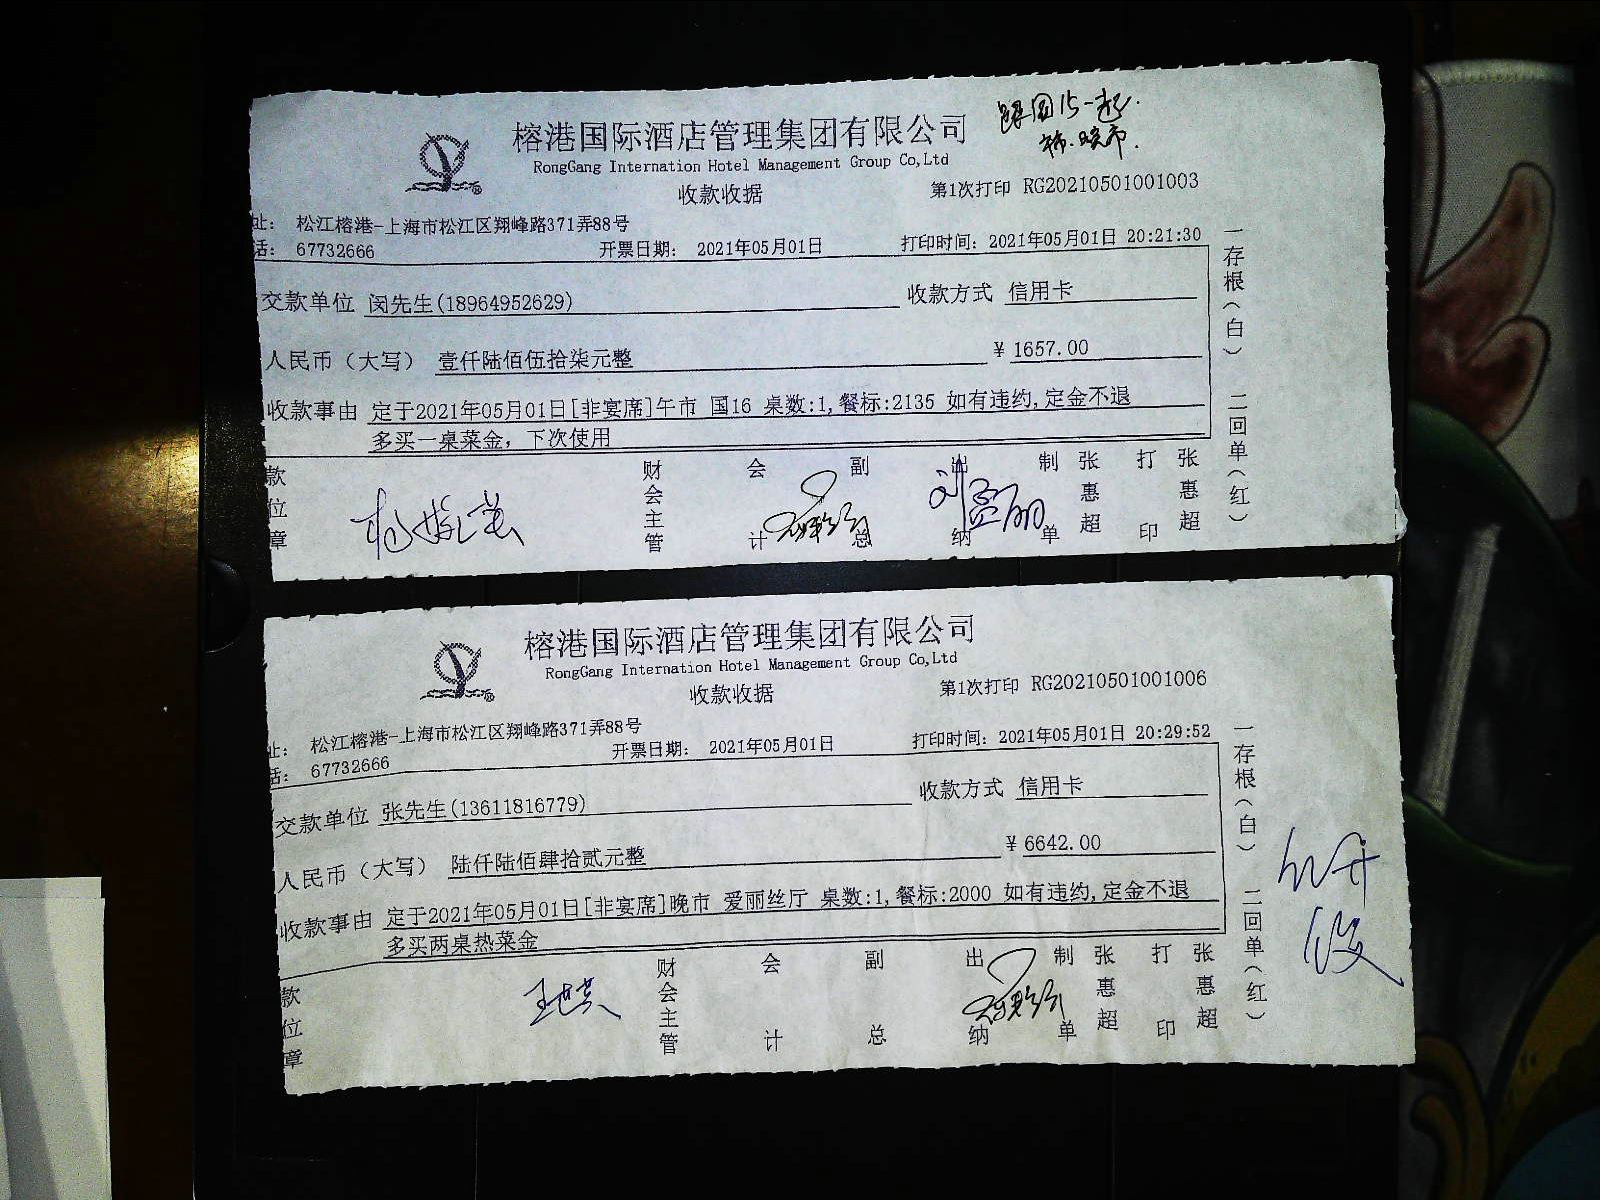 榕港国际酒店管理集团有限公司
RongGang Internation Hotel Management Group Co,Ltd
收款收据
第1次打印 RG20210501001003
址: 松江榕港-上海市松江区翔峰路371弄88号
话: 67732666 开票日期: 2021年05月01日 打印时间: 2021年05月01日 20:21:30
交款单位 闵先生(18964952629) 收款方式 信用卡
人民币（大写） 壹仟陆佰伍拾柒元整 ¥ 1657.00
收款事由 定于2021年05月01日[非宴席]午市 国16 桌数:1,餐标:2135 如有违约,定金不退
多买一桌菜金，下次使用
款位章 财会主管 会计 副总 出纳 制单 张惠超 打印 张惠超
一存根(白) 二回单(红)
榕港国际酒店管理集团有限公司
RongGang Internation Hotel Management Group Co,Ltd
收款收据
第1次打印 RG20210501001006
址: 松江榕港-上海市松江区翔峰路371弄88号
话: 67732666 开票日期: 2021年05月01日 打印时间: 2021年05月01日 20:29:52
交款单位 张先生(13611816779) 收款方式 信用卡
人民币（大写） 陆仟陆佰肆拾贰元整 ¥ 6642.00
收款事由 定于2021年05月01日[非宴席]晚市 爱丽丝厅 桌数:1,餐标:2000 如有违约,定金不退
多买两桌热菜金
款位章 财会主管 会计 副总 出纳 制单 张惠超 打印 张惠超
一存根(白) 二回单(红)